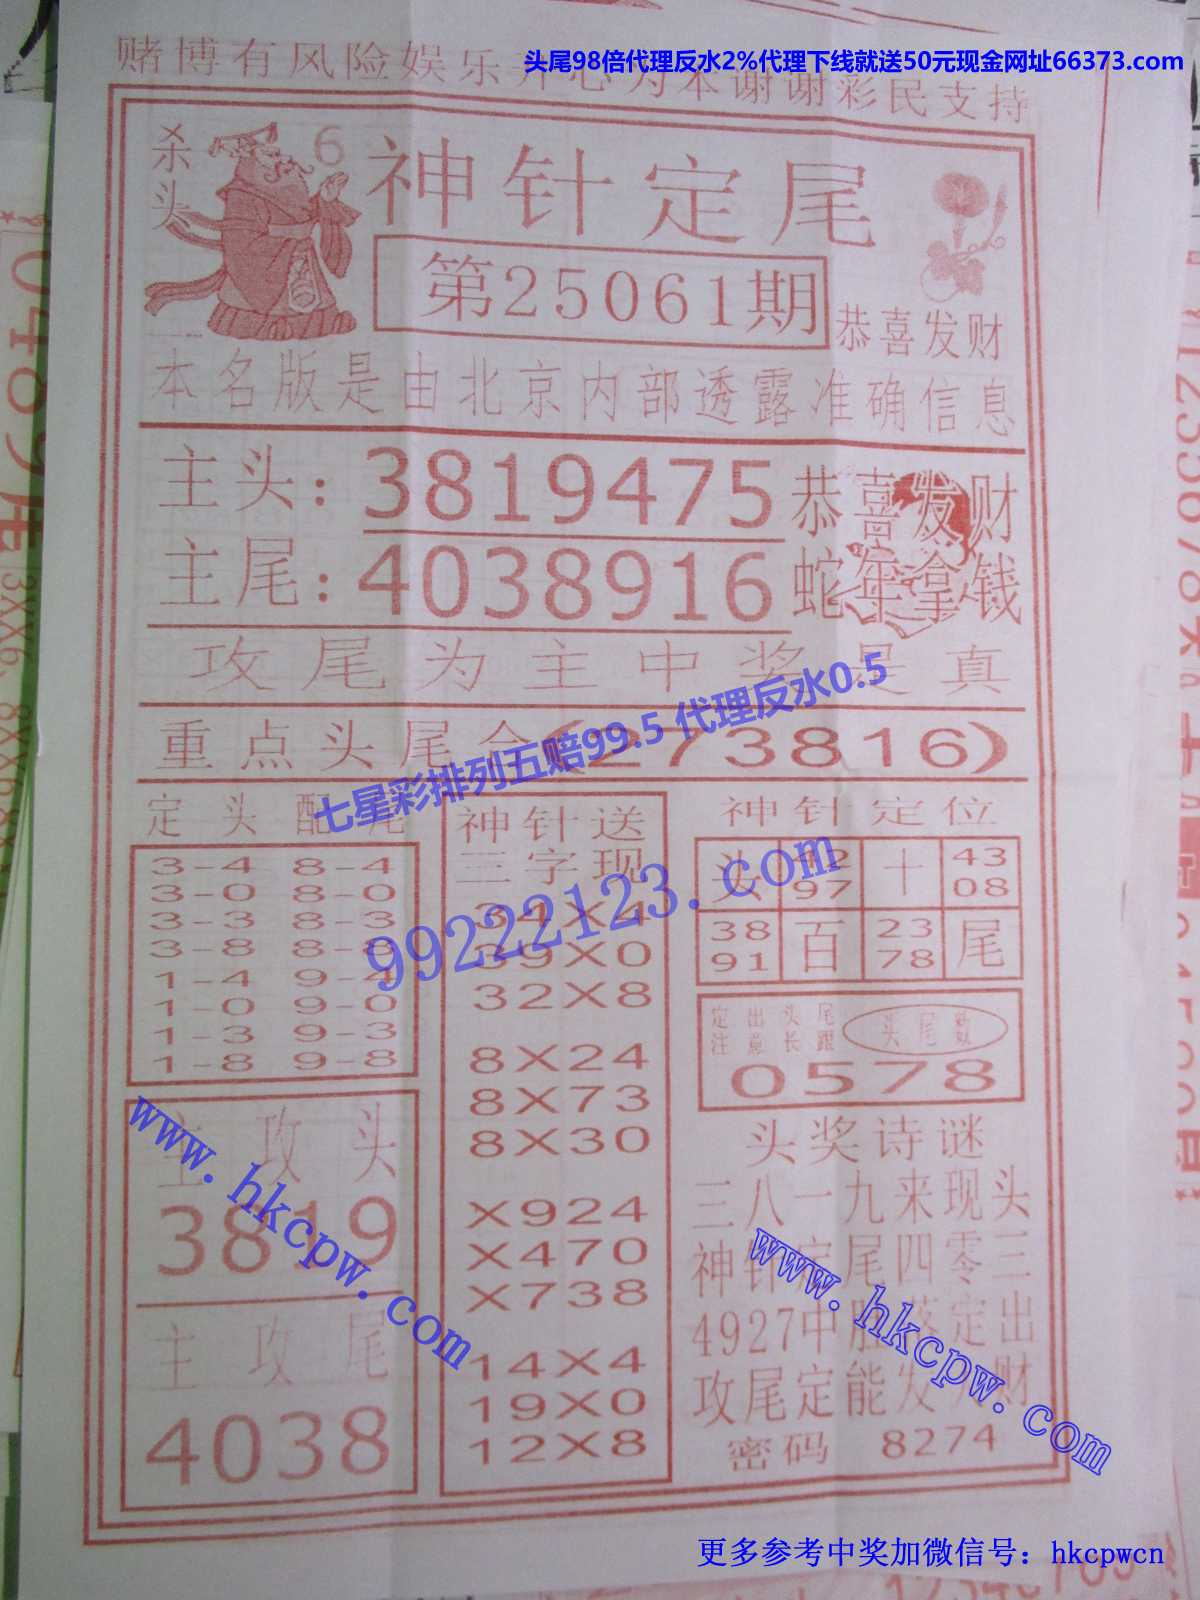 头尾98倍代理反水2%代理下线就送50元现金网址66373.com
赌博有风险娱乐开心为本谢谢彩民支持
杀头
6
神针定尾
第25061期
恭喜发财
本名版是由北京内部透露准确信息
主头：3819475
恭喜发财
主尾：4038916
蛇年拿钱
攻尾为主中奖是真
重点头尾合(273816)
七星彩排列五赔99.5 代理反水0.5
定头配尾
3-4 8-4
3-0 8-0
3-3 8-3
3-8 8-8
1-4 9-4
1-0 9-0
1-3 9-3
1-8 9-8
主攻头
3819
主攻尾
4038
神针送
三字现
34X4
39X0
32X8
8X24
8X73
8X30
X924
X470
X738
14X4
19X0
12X8
神针定位
头 42 97 十 43 08
38 91 百 23 78 尾
定出头尾
注意长跟
头尾数
0578
头奖诗谜
三八一九来现头
神针定尾四零三
4927中胜 定出
攻尾定能发 财
密码 8274
99222123.com
www.hkcpw.com
www.hkcpw.com
更多参考中奖加微信号：hkcpwcn